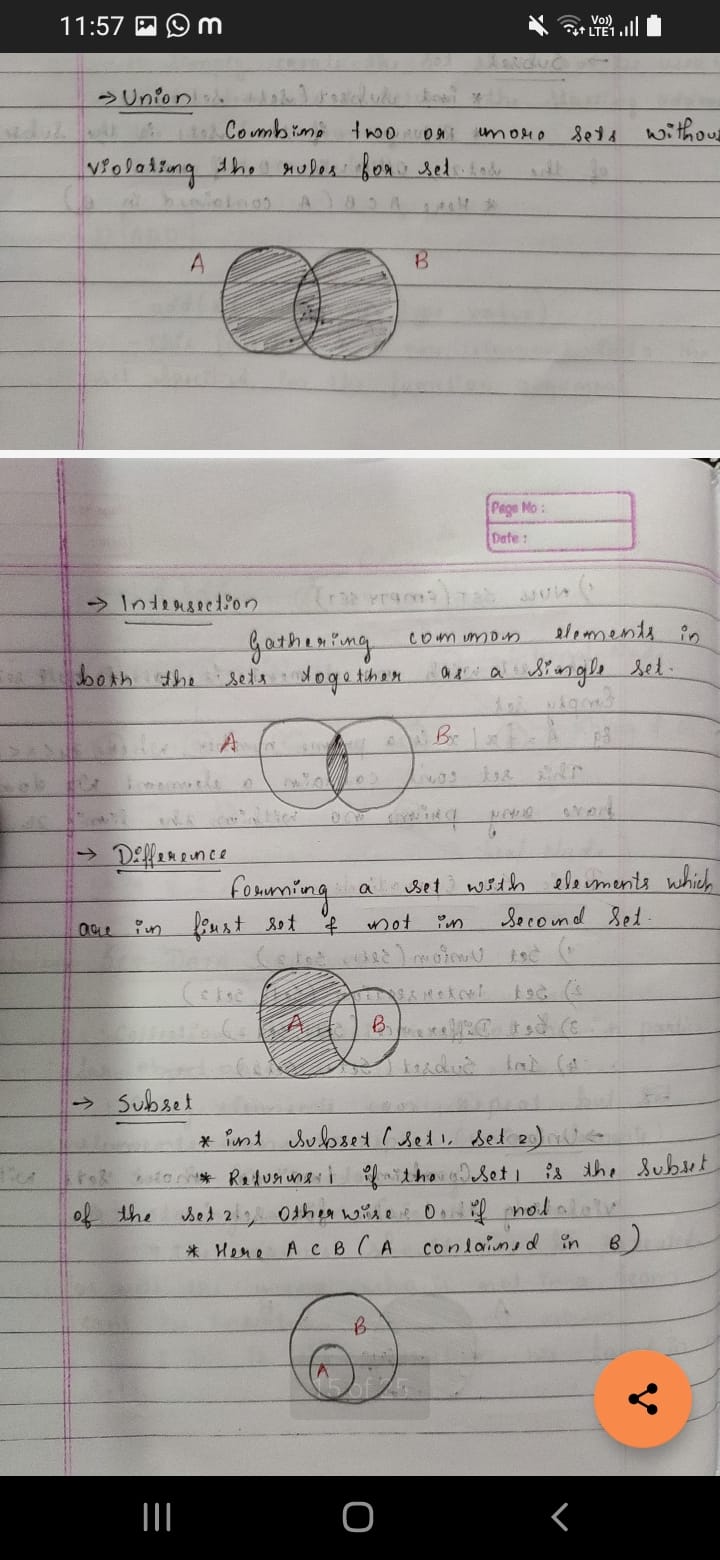 11:57
Vo))
LTE1
→ Union
Combine two or more sets withou
violating the rules for set.
A
B
Page No :
Date :
→ Intersection
Gathering common elements in
both the sets together as a single set.
A
B
→ Difference
Forming a set with elements which
are in first set & not in Second Set.
A
B
→ Subset
* int Subset (Set 1, Set 2)
* Returns 1 if the Set 1 is the Subset
of the set 2, otherwise 0 if not
* Here A ⊂ B (A contained in B)
B
A
15 of 25